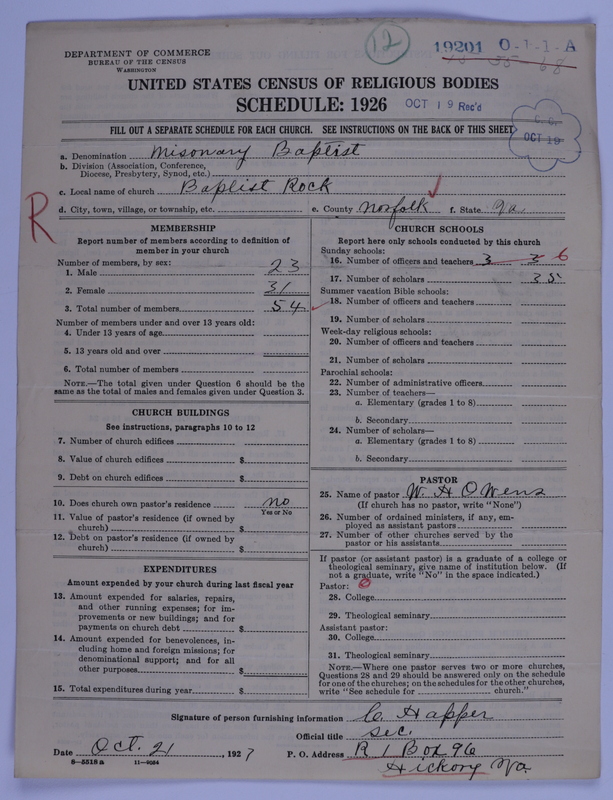 12
19201 0-1-1-A
DEPARTMENT OF COMMERCE
BUREAU OF THE CENSUS
WASHINGTON
UNITED STATES CENSUS OF RELIGIOUS BODIES
SCHEDULE: 1926
OCT 19 Rec'd
OCT 19
FILL OUT A SEPARATE SCHEDULE FOR EACH CHURCH. SEE INSTRUCTIONS ON THE BACK OF THIS SHEET
a. Denomination Misonary Baptist
b. Division (Association, Conference,
Diocese, Presbytery, Synod, etc.)
c. Local name of church Baptist Rock
R
d. City, town, village, or township, etc. e. County Norfolk f. State Va.
MEMBERSHIP
Report number of members according to definition of
member in your church
Number of members, by sex:
1. Male 23
2. Female 31
3. Total number of members 54
Number of members under and over 13 years old:
4. Under 13 years of age
5. 13 years old and over
6. Total number of members
NOTE.—The total given under Question 6 should be the
same as the total of males and females given under Question 3.
CHURCH BUILDINGS
See instructions, paragraphs 10 to 12
7. Number of church edifices
8. Value of church edifices $
9. Debt on church edifices $
10. Does church own pastor's residence no
Yes or No
11. Value of pastor's residence (if owned by
church) $
12. Debt on pastor's residence (if owned by
church) $
EXPENDITURES
Amount expended by your church during last fiscal year
13. Amount expended for salaries, repairs,
and other running expenses; for im-
provements or new buildings; and for
payments on church debt $
14. Amount expended for benevolences, in-
cluding home and foreign missions; for
denominational support; and for all
other purposes $
15. Total expenditures during year $
CHURCH SCHOOLS
Report here only schools conducted by this church
Sunday schools:
16. Number of officers and teachers 3 3 6
17. Number of scholars 35
Summer vacation Bible schools:
18. Number of officers and teachers
19. Number of scholars
Week-day religious schools:
20. Number of officers and teachers
21. Number of scholars
Parochial schools:
22. Number of administrative officers
23. Number of teachers—
a. Elementary (grades 1 to 8)
b. Secondary
24. Number of scholars—
a. Elementary (grades 1 to 8)
b. Secondary
PASTOR
25. Name of pastor W. H Owens
(If church has no pastor, write "None")
26. Number of ordained ministers, if any, em-
ployed as assistant pastors
27. Number of other churches served by the
pastor or his assistants
If pastor (or assistant pastor) is a graduate of a college or
theological seminary, give name of institution below. (If
not a graduate, write "No" in the space indicated.)
Pastor: 0
28. College
29. Theological seminary
Assistant pastor:
30. College
31. Theological seminary
NOTE.—Where one pastor serves two or more churches,
Questions 28 and 29 should be answered only on the schedule
for one of the churches; on the schedules for the other churches,
write "See schedule for church."
Signature of person furnishing information C. Happer
Official title Sec.
Date Oct. 21, 1927 P. O. Address R 1 Box 96
8-5518 a 11-9084 Hickory Va.